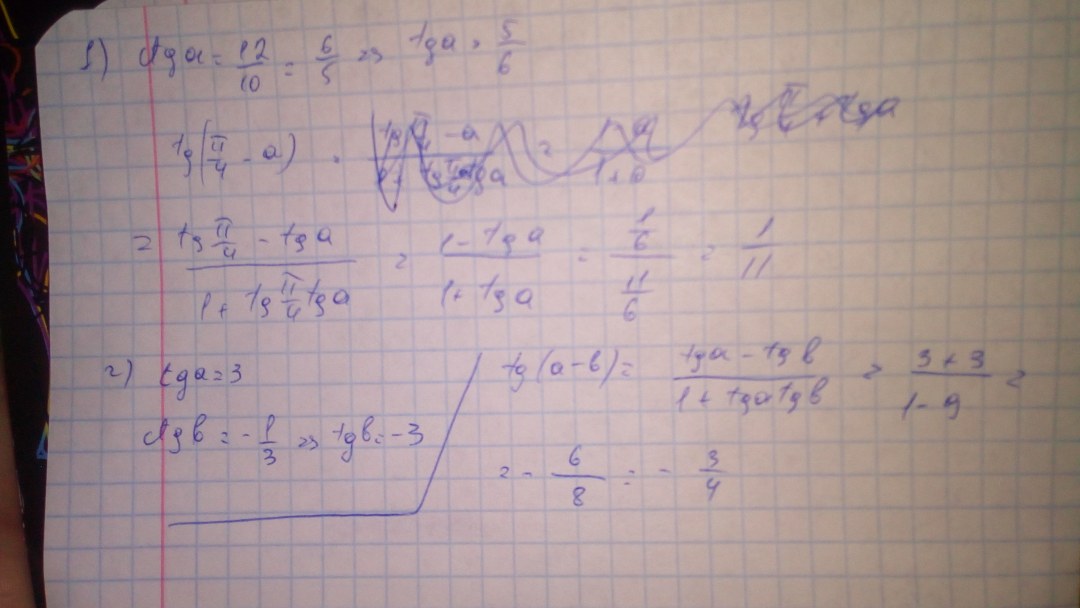 1) ctg a = 12/10 = 6/5 => tg a = 5/6
tg(π/4 - a) =
= (tg π/4 - tg a)/(1 + tg π/4 tg a) = (1 - tg a)/(1 + tg a) = (1/6)/(11/6) = 1/11
2) tg a = 3
ctg b = -1/3 => tg b = -3
tg(a-b) = (tg a - tg b)/(1 + tg a tg b) = (3+3)/(1-9) =
= - 6/8 = - 3/4